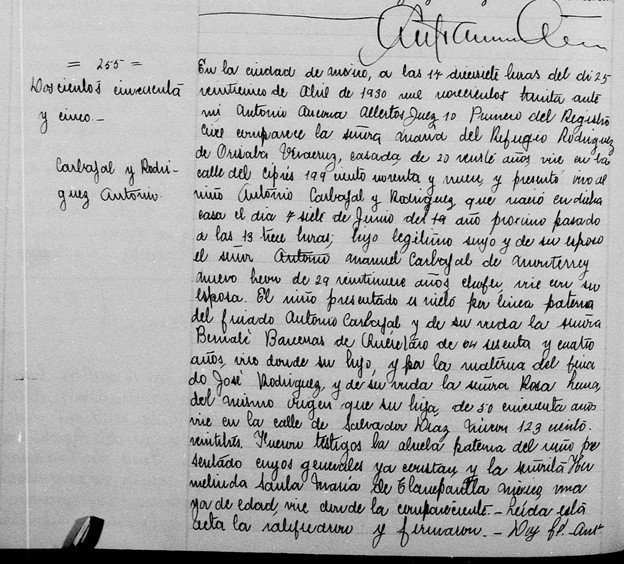 = 255 =
Doscientos cincuenta
y cinco.-
Carbajal y Rodri-
guez Antonio.
En la ciudad de méxico, a las 17 diecisiete horas del dia 25
veinticinco de Abril de 1930 mil novecientos treinta ante
mi Antonio Ancona Albertos Juez 1o Primero del Registro
Civil comparece la señora maria del Refugio Rodriguez
de Orizaba Veracruz, casada, de 20 veinte años vive en la
calle del Ciprés 199 ciento noventa y nueve, y presentó vivo al
niño Antonio Carbajal y Rodriguez que nació en dicha
casa el dia 7 siete de Junio del año proximo pasado
a las 13 trece horas; hijo legitimo suyo y de su esposo
el señor Antonio manuel Carbajal de monterrey
nuevo leon de 29 veintinueve años chofer vive con su
esposa. El niño presentado es nieto por linea paterna
del finado Antonio Carbajal y de su viuda la señora
Bernabé Barcenas de Querétaro de 64 sesenta y cuatro
años, vive donde su hijo, y por la materna del fina
do José Rodriguez y de su viuda la señora Rosa
del mismo origen que su hija, de 50 cincuenta años
vive en la calle de Salvador Diaz miron 123 ciento
veintitrés. Fueron testigos la abuela paterna del niño pre
sentado cuyos generales ya constan y la señorita Her
melinda Santa Maria de Tlanepantla méxico ma
ya de edad, vive donde la compareciente.- Leida está
acta la ratificaron y firmaron.- Doy fé. Ant